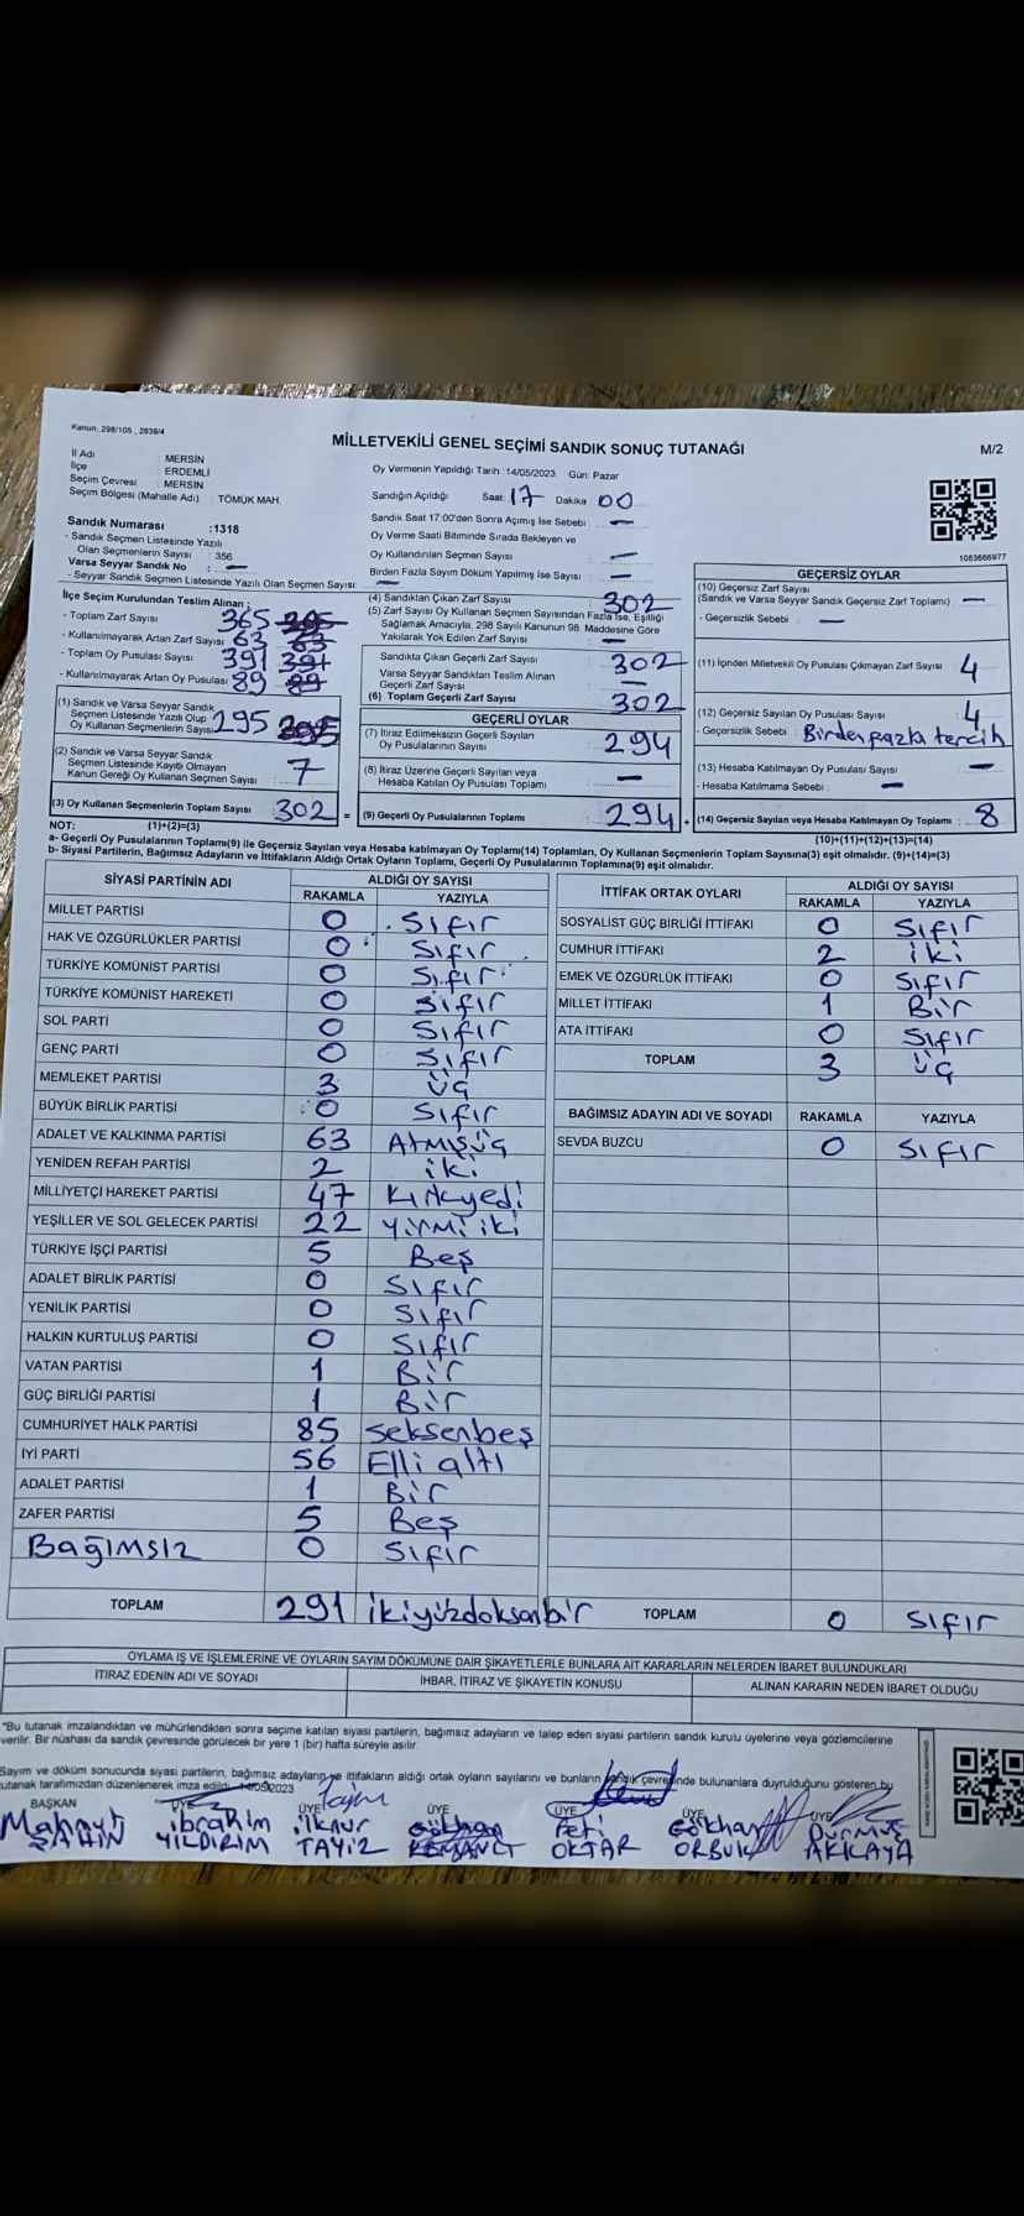 Kanun: 298/105 , 2839/4
MİLLETVEKİLİ GENEL SEÇİMİ SANDIK SONUÇ TUTANAĞI
M/2
İl Adı : MERSİN
İlçe : ERDEMLİ
Seçim Çevresi : MERSİN
Seçim Bölgesi (Mahalle Adı) : TÖMÜK MAH.
Sandık Numarası :1318
- Sandık Seçmen Listesinde Yazılı
Olan Seçmenlerin Sayısı : 356
Varsa Seyyar Sandık No : —
- Seyyar Sandık Seçmen Listesinde Yazılı Olan Seçmen Sayısı: —
Oy Vermenin Yapıldığı Tarih :14/05/2023 Gün: Pazar
Sandığın Açıldığı Saat: 17 Dakika: 00
Sandık Saat 17:00'den Sonra Açımış İse Sebebi : —
Oy Verme Saati Bitiminde Sırada Bekleyen ve
Oy Kullandırılan Seçmen Sayısı : —
Birden Fazla Sayım Döküm Yapılmış İse Sayısı : —
1083666977
İlçe Seçim Kurulundan Teslim Alınan :
- Toplam Zarf Sayısı : 365
- Kullanılmayarak Artan Zarf Sayısı : 63
- Toplam Oy Pusulası Sayısı : 391
- Kullanılmayarak Artan Oy Pusulası : 89
(1) Sandık ve Varsa Seyyar Sandık
Seçmen Listesinde Yazılı Olup
Oy Kullanan Seçmenlerin Sayısı : 295
(2) Sandık ve Varsa Seyyar Sandık
Seçmen Listesinde Kayıtlı Olmayan
Kanun Gereği Oy Kullanan Seçmen Sayısı : 7
(3) Oy Kullanan Seçmenlerin Toplam Sayısı : 302 =
(4) Sandıktan Çıkan Zarf Sayısı : 302
(5) Zarf Sayısı Oy Kullanan Seçmen Sayısından Fazla İse, Eşitliği
Sağlamak Amacıyla, 298 Sayılı Kanunun 98. Maddesine Göre
Yakılarak Yok Edilen Zarf Sayısı : —
Sandıkta Çıkan Geçerli Zarf Sayısı : 302
Varsa Seyyar Sandıktan Teslim Alınan
Geçerli Zarf Sayısı : —
(6) Toplam Geçerli Zarf Sayısı : 302
GEÇERLİ OYLAR
(7) İtiraz Edilmeksizin Geçerli Sayılan
Oy Pusulalarının Sayısı : 294
(8) İtiraz Üzerine Geçerli Sayılan veya
Hesaba Katılan Oy Pusulası Toplamı : —
(9) Geçerli Oy Pusulalarının Toplamı : 294 +
GEÇERSİZ OYLAR
(10) Geçersiz Zarf Sayısı
(Sandık ve Varsa Seyyar Sandık Geçersiz Zarf Toplamı) : —
- Geçersizlik Sebebi : —
(11) İçinden Milletvekili Oy Pusulası Çıkmayan Zarf Sayısı : 4
(12) Geçersiz Sayılan Oy Pusulası Sayısı : 4
- Geçersizlik Sebebi : Birden fazla tercih
(13) Hesaba Katılmayan Oy Pusulası Sayısı : —
- Hesaba Katılmama Sebebi : —
(14) Geçersiz Sayılan veya Hesaba Katılmayan Oy Toplamı : 8
NOT: (1)+(2)=(3)
(10)+(11)+(12)+(13)=(14)
a- Geçerli Oy Pusulalarının Toplamı(9) ile Geçersiz Sayılan veya Hesaba katılmayan Oy Toplamı(14) Toplamları, Oy Kullanan Seçmenlerin Toplam Sayısına(3) eşit olmalıdır. (9)+(14)=(3)
b- Siyasi Partilerin, Bağımsız Adayların ve İttifakların Aldığı Ortak Oyların Toplamı, Geçerli Oy Pusulalarının Toplamına(9) eşit olmalıdır.
SİYASİ PARTİNİN ADI ALDIĞI OY SAYISI
RAKAMLA YAZIYLA
MİLLET PARTİSİ 0 Sıfır
HAK VE ÖZGÜRLÜKLER PARTİSİ 0 Sıfır
TÜRKİYE KOMÜNİST PARTİSİ 0 Sıfır
TÜRKİYE KOMÜNİST HAREKETİ 0 Sıfır
SOL PARTİ 0 Sıfır
GENÇ PARTİ 0 Sıfır
MEMLEKET PARTİSİ 3 Üç
BÜYÜK BİRLİK PARTİSİ 0 Sıfır
ADALET VE KALKINMA PARTİSİ 63 Atmışüç
YENİDEN REFAH PARTİSİ 2 iki
MİLLİYETÇİ HAREKET PARTİSİ 47 Kırkyedi
YEŞİLLER VE SOL GELECEK PARTİSİ 22 Yirmi iki
TÜRKİYE İŞÇİ PARTİSİ 5 Beş
ADALET BİRLİK PARTİSİ 0 Sıfır
YENİLİK PARTİSİ 0 Sıfır
HALKIN KURTULUŞ PARTİSİ 0 Sıfır
VATAN PARTİSİ 1 Bir
GÜÇ BİRLİĞİ PARTİSİ 1 Bir
CUMHURİYET HALK PARTİSİ 85 Seksenbeş
İYİ PARTİ 56 Elli altı
ADALET PARTİSİ 1 Bir
ZAFER PARTİSİ 5 Beş
Bağımsız 0 Sıfır
TOPLAM 291 ikiyüzdoksanbir
İTTİFAK ORTAK OYLARI ALDIĞI OY SAYISI
RAKAMLA YAZIYLA
SOSYALİST GÜÇ BİRLİĞİ İTTİFAKI 0 Sıfır
CUMHUR İTTİFAKI 2 iki
EMEK VE ÖZGÜRLÜK İTTİFAKI 0 Sıfır
MİLLET İTTİFAKI 1 Bir
ATA İTTİFAKI 0 Sıfır
TOPLAM 3 Üç
BAĞIMSIZ ADAYIN ADI VE SOYADI RAKAMLA YAZIYLA
SEVDA BUZCU 0 Sıfır
TOPLAM 0 Sıfır
OYLAMA İŞ VE İŞLEMLERİNE VE OYLARIN SAYIM DÖKÜMÜNE DAİR ŞİKAYETLERLE BUNLARA AİT KARARLARIN NELERDEN İBARET BULUNDUKLARI
İTİRAZ EDENİN ADI VE SOYADI İHBAR, İTİRAZ VE ŞİKAYETİN KONUSU ALINAN KARARIN NEDEN İBARET OLDUĞU
"Bu tutanak imzalandıktan ve mühürlendikten sonra seçime katılan siyasi partilerin, bağımsız adayların ve talep eden siyasi partilerin sandık kurulu üyelerine veya gözlemcilerine
verilir. Bir nüshası da sandık çevresinde görülecek bir yere 1 (bir) hafta süreyle asılır.
Sayım ve döküm sonucunda siyasi partilerin, bağımsız adayların ve ittifakların aldığı ortak oyların sayılarını ve bunların sandık çevresinde bulunanlara duyrulduğunu gösteren bu
tutanak tarafımızdan düzenlenerek imza edildi. 14/05/2023
BAŞKAN ÜYE ÜYE ÜYE ÜYE ÜYE ÜYE
Mahmut İbrahim İlknur Gökhan Feti Gökhan Durmuş
ŞAHİN YILDIRIM TAYIZ OKTAR ORBUK AKKAYA